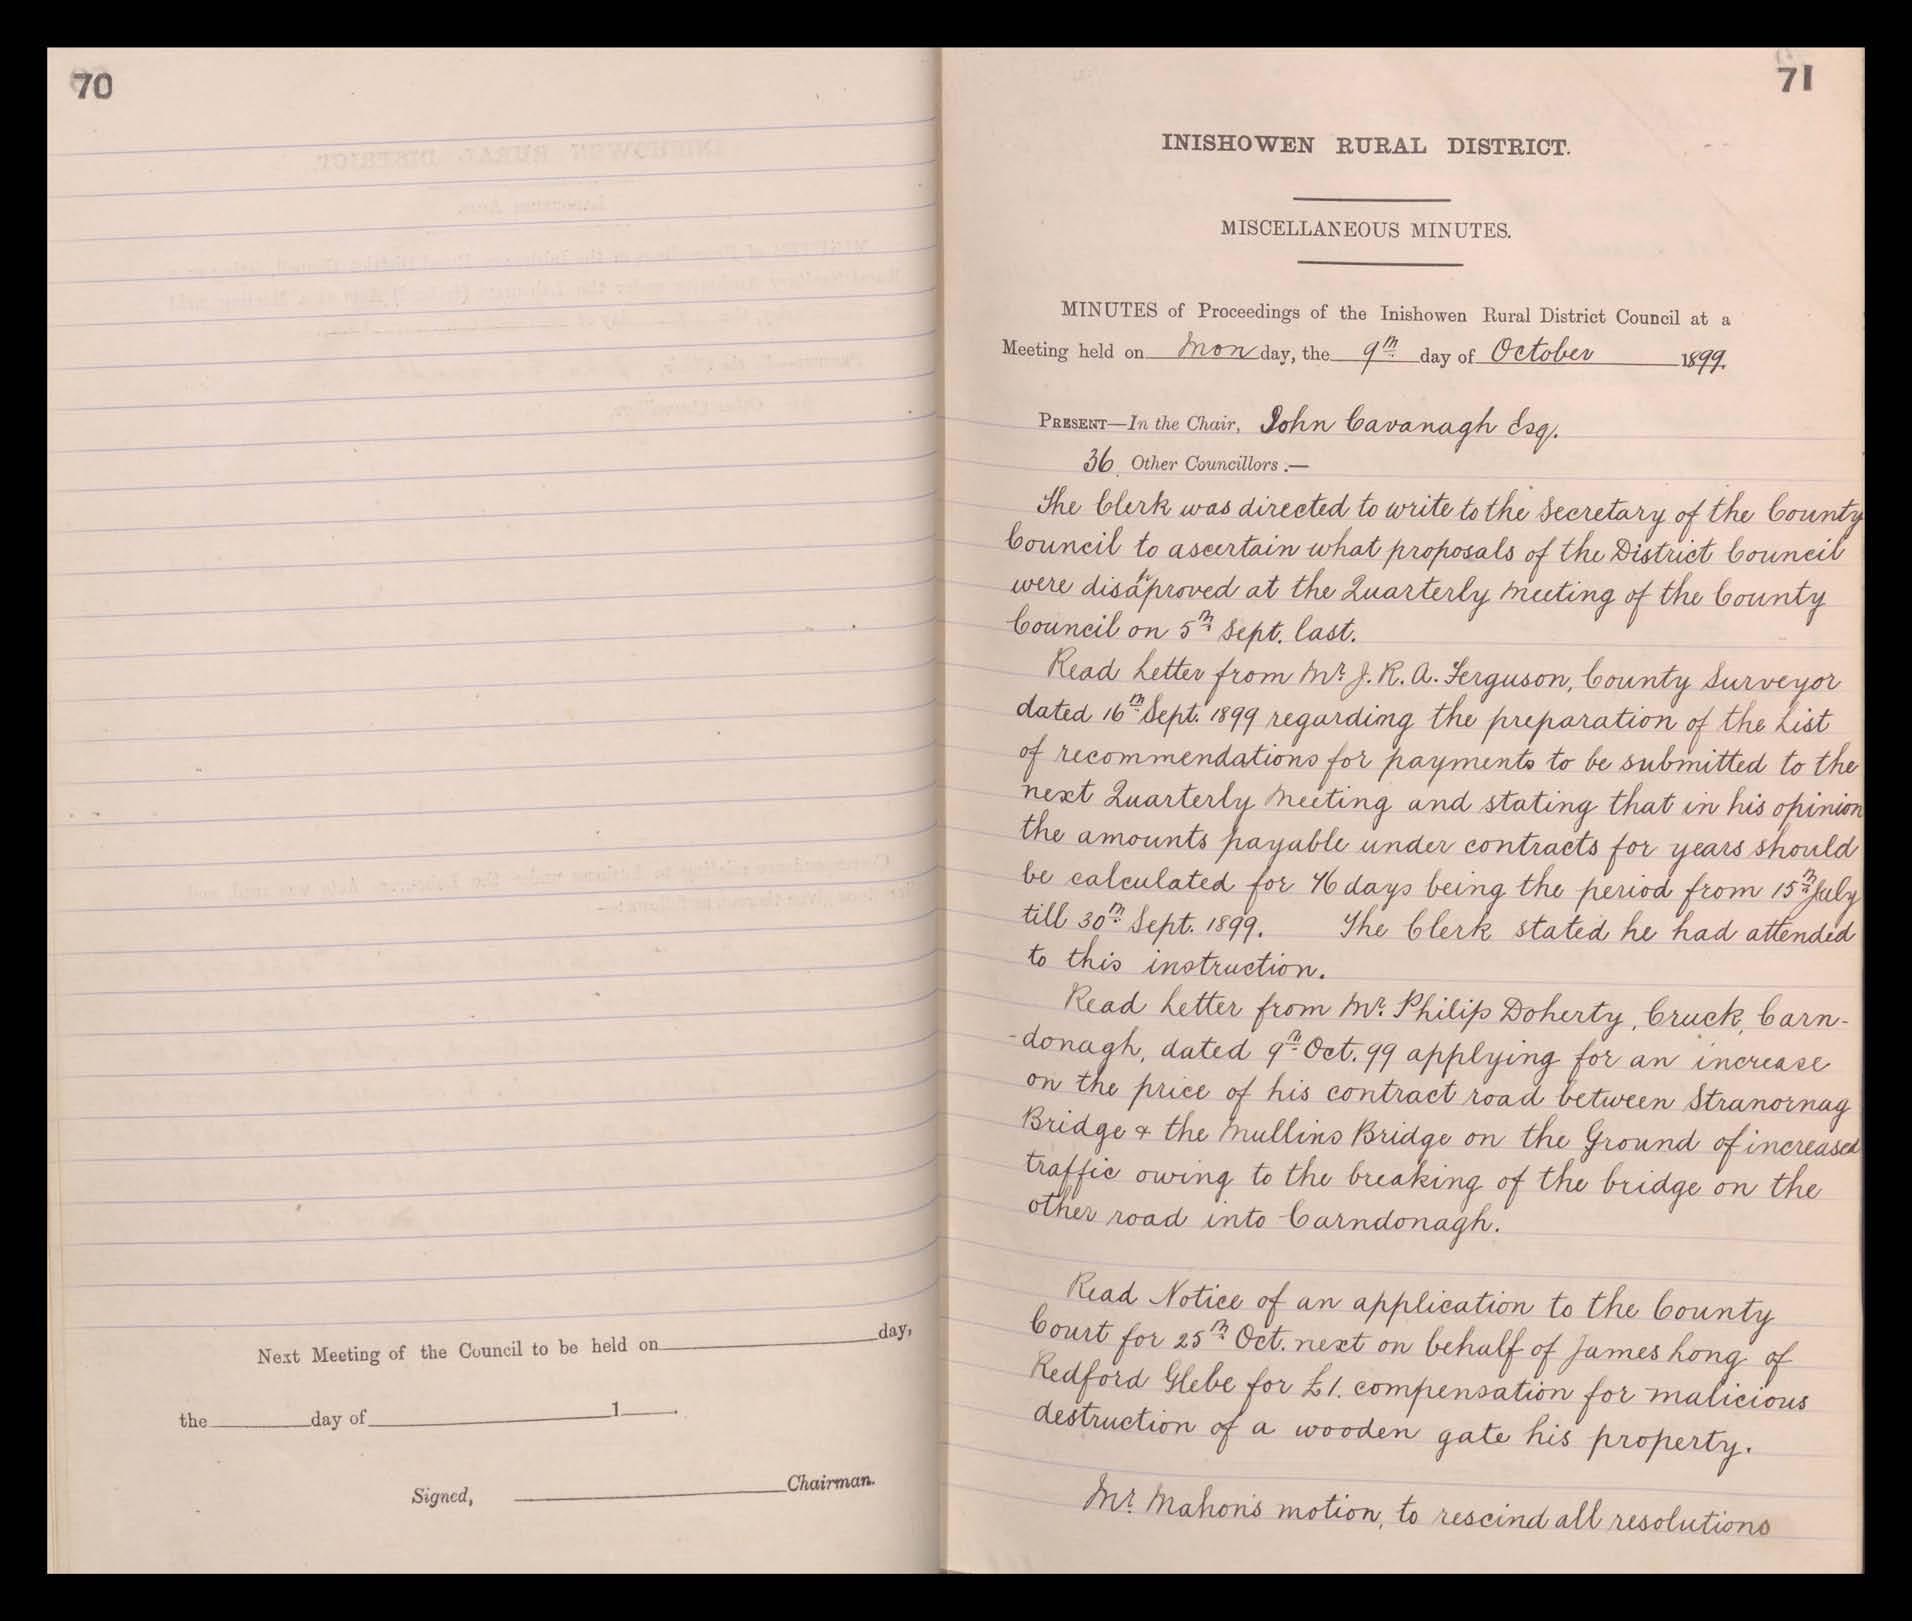 70
Next Meeting of the Council to be held on day,
the day of 1 .
Signed, Chairman.
71
INISHOWEN RURAL DISTRICT.
MISCELLANEOUS MINUTES.
MINUTES of Proceedings of the Inishowen Rural District Council at a
Meeting held on Mon day, the 9th day of October 1899.
PRESENT—In the Chair, John Cavanagh Esq.
36 Other Councillors :—
The Clerk was directed to write to the Secretary of the County
Council to ascertain what proposals of the District Council
were disapproved at the Quarterly Meeting of the County
Council on 5th Sept. last.
Read Letter from Mr. J. R. A. Ferguson, County Surveyor
dated 16th Sept. 1899 regarding the preparation of the List
of recommendations for payments to be submitted to the
next Quarterly Meeting and stating that in his opinion
the amounts payable under contracts for years should
be calculated for 76 days being the period from 15th July
till 30th Sept. 1899. The Clerk stated he had attended
to this instruction.
Read Letter from Mr. Philip Doherty, Cruck, Carn-
-donagh, dated 9th Oct. 99 applying for an increase
on the price of his contract road between Stranornag
Bridge & the Mullins Bridge on the Ground of increased
traffic owing to the breaking of the bridge on the
other road into Carndonagh.
Read Notice of an application to the County
Court for 25th Oct. next on behalf of James Long of
Redford Glebe for £1. compensation for malicious
destruction of a wooden gate his property.
Mr. Mahon's motion, to rescind all resolutions